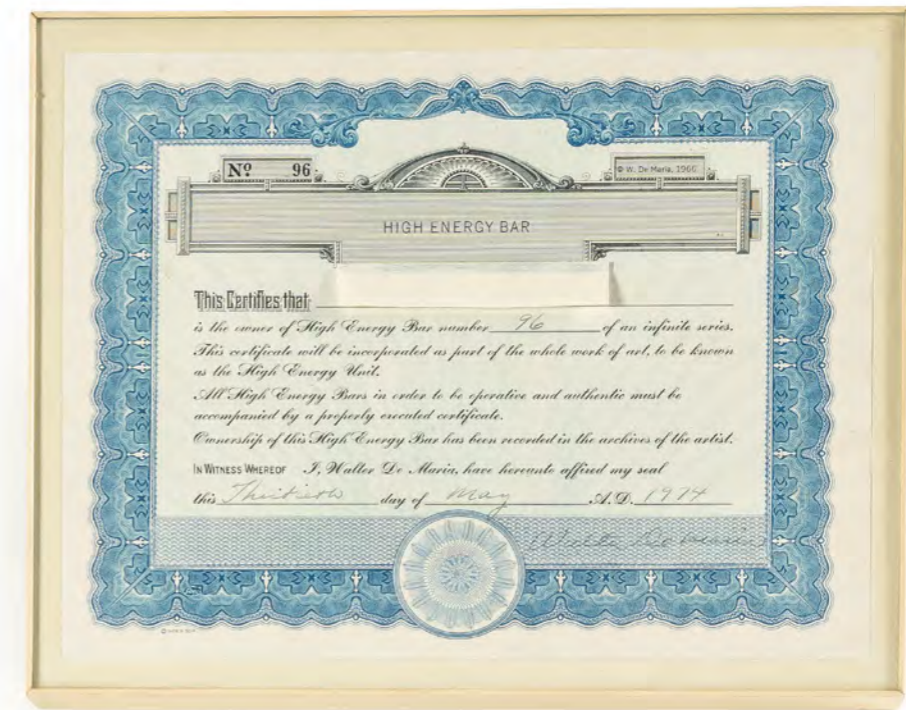 Nº 96
© W. De Maria, 1966
HIGH ENERGY BAR
This Certifies that
is the owner of High Energy Bar number 96 of an infinite series.
This certificate will be incorporated as part of the whole work of art, to be known
as the High Energy Unit.
All High Energy Bars in order to be operative and authentic must be
accompanied by a properly executed certificate.
Ownership of this High Energy Bar has been recorded in the archives of the artist.
IN WITNESS WHEREOF I, Walter De Maria, have hereunto affixed my seal
this Thirtieth day of May A.D. 1974
Walter De Maria